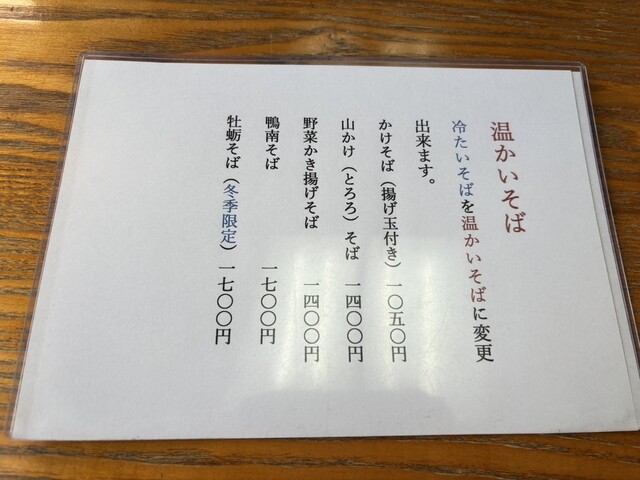 温かいそば
冷たいそばを温かいそばに変更
出来ます。
かけそば（揚げ玉付き）一〇五〇円
山かけ（とろろ）そば 一四〇〇円
野菜かき揚げそば 一四〇〇円
鴨南そば 一七〇〇円
牡蛎そば（冬季限定）一七〇〇円